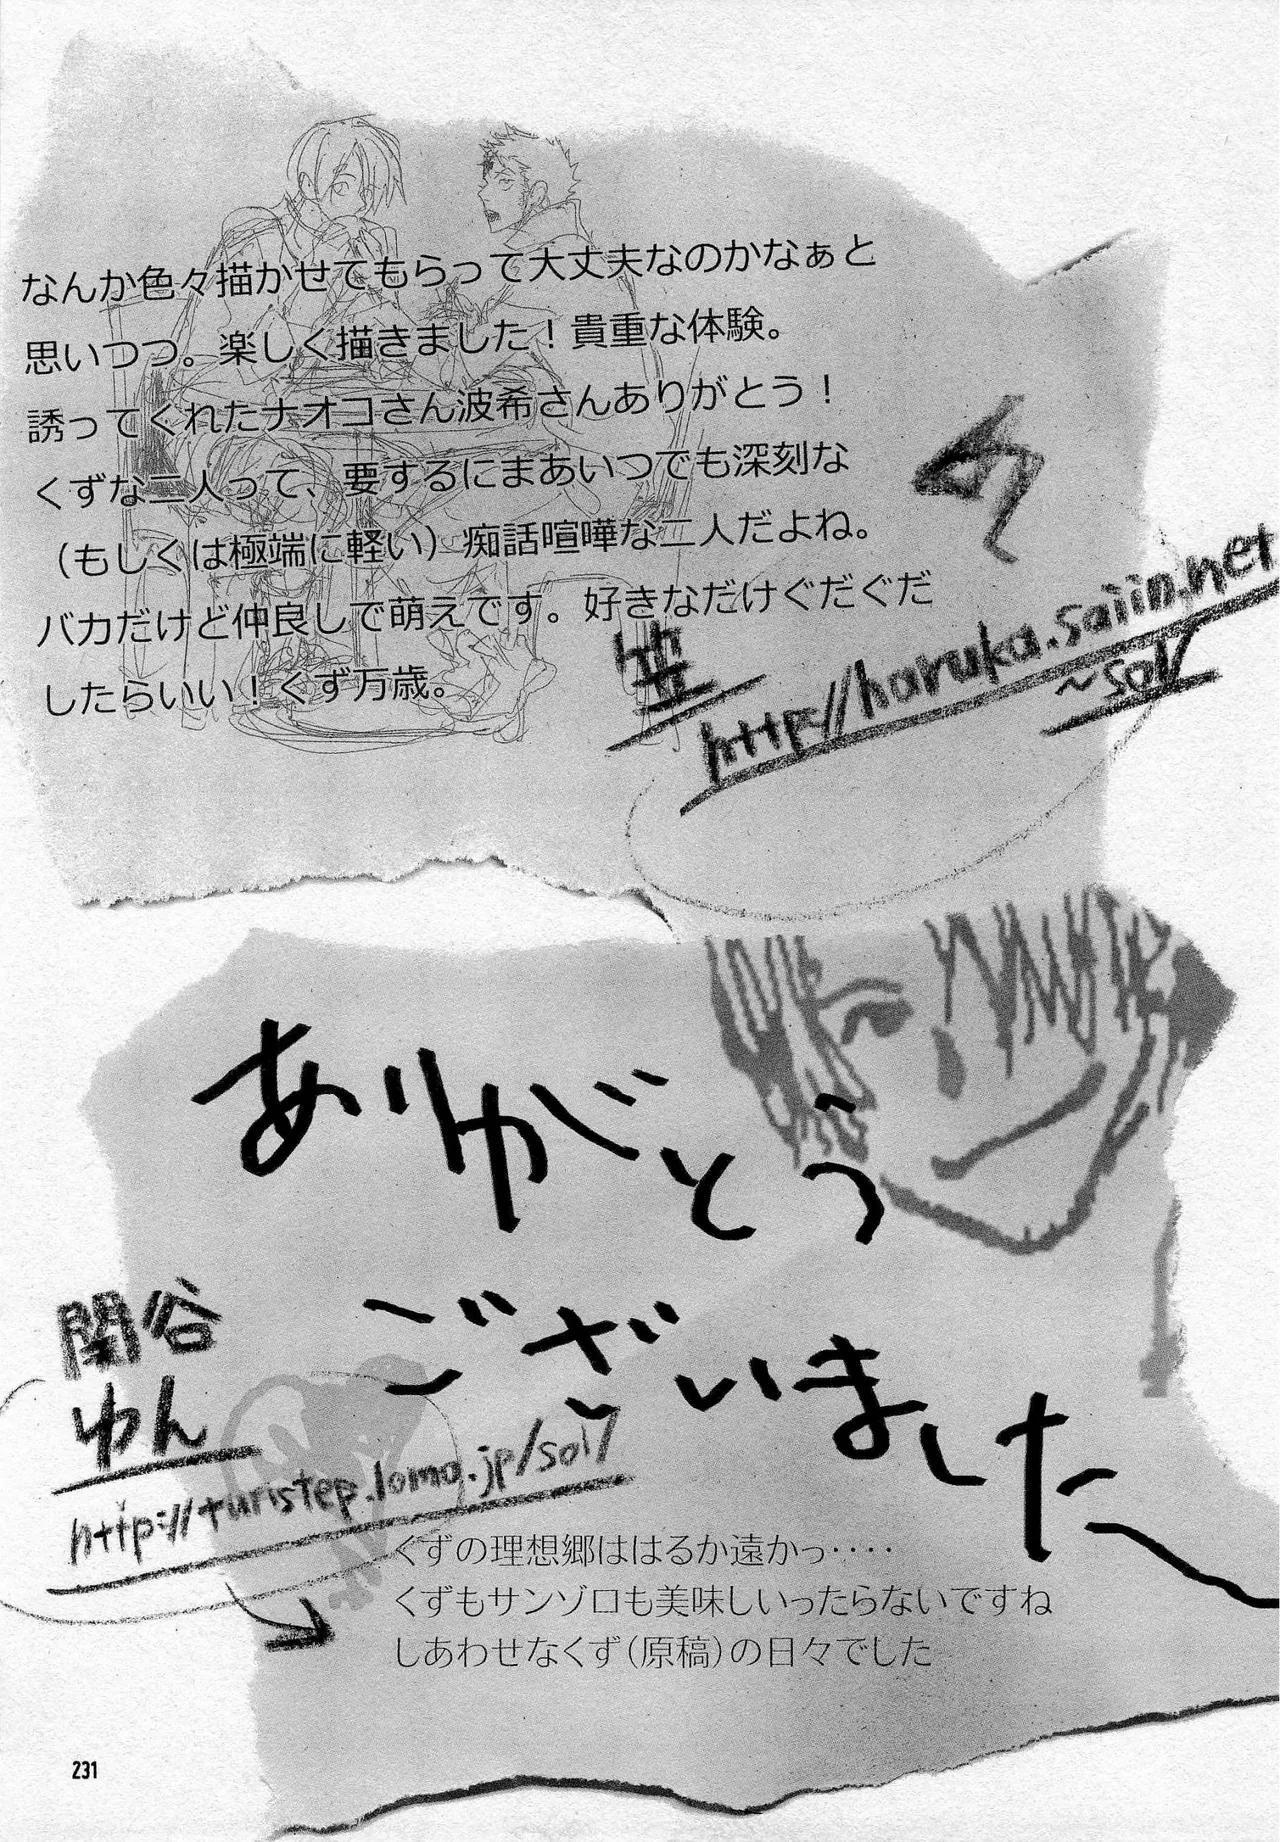 なんか色々描かせてもらって大丈夫なのかなぁと
思いつつ。楽しく描きました！貴重な体験。
誘ってくれたナオコさん波希さんありがとう！
くずな二人って、要するにまあいつでも深刻な
（もしくは極端に軽い）痴話喧嘩な二人だよね。
バカだけど仲良しで萌えです。好きなだけぐだぐだ
したらいい！くず万歳。
http://haruka.saiin.net
~sol/
ありがとう
ございました
関谷
ゆん
http://turistep.loma.jp/sol/
くずの理想郷ははるか遠かっ‥‥
くずもサンゾロも美味しいったらないですね
しあわせなくず（原稿）の日々でした
231